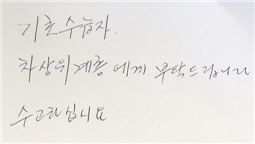 기초수급자.
차상위계층에게 부탁드립니다
수고하십시요